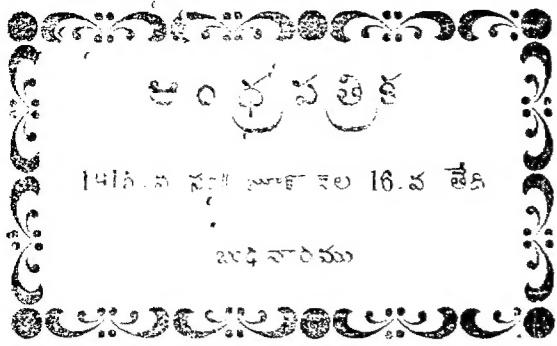 ఆంధ్రపత్రిక
1915-వ సం॥ జూ౯ నెల 16-వ తేది
బుధవారము